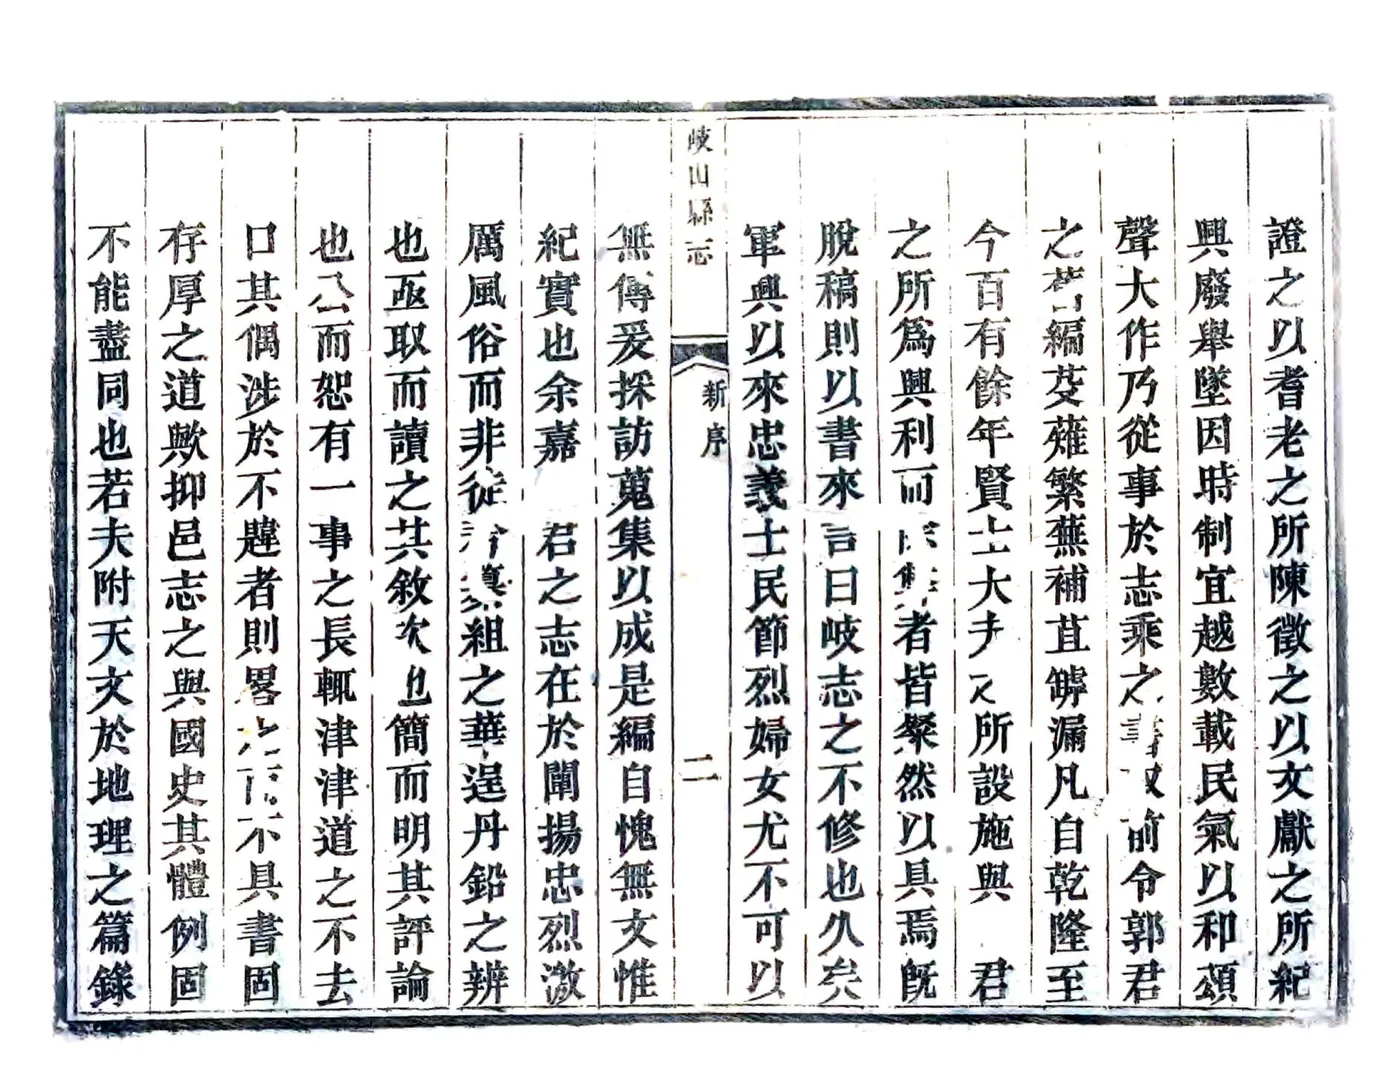 證之以耆老之所陳徵之以文獻之所紀
興廢舉墜因時制宜越數載民氣以和頌
聲大作乃從事於志乘之書取前令郭君
之舊編芟薙繁蕪補苴罅漏凡自乾隆至
今百有餘年賢士大夫之所設施與 君
之所爲興利而除弊者皆粲然以具焉旣
脫稿則以書來言曰岐志之不修也久矣
軍興以來忠義士民節烈婦女尤不可以
岐山縣志 新序 二
無傳爰採訪蒐集以成是編自愧無文惟
紀實也余嘉 君之志在於闡揚忠烈激
厲風俗而非徒組之華逞丹鉛之辨
也亟取而讀之其敘次也簡而明其評論
也公而恕有一事之長輒津津道之不去
口其偶涉於不韙者則畧之而不具書固
存厚之道歟抑邑志之與國史其體例固
不能盡同也若夫附天文於地理之篇錄